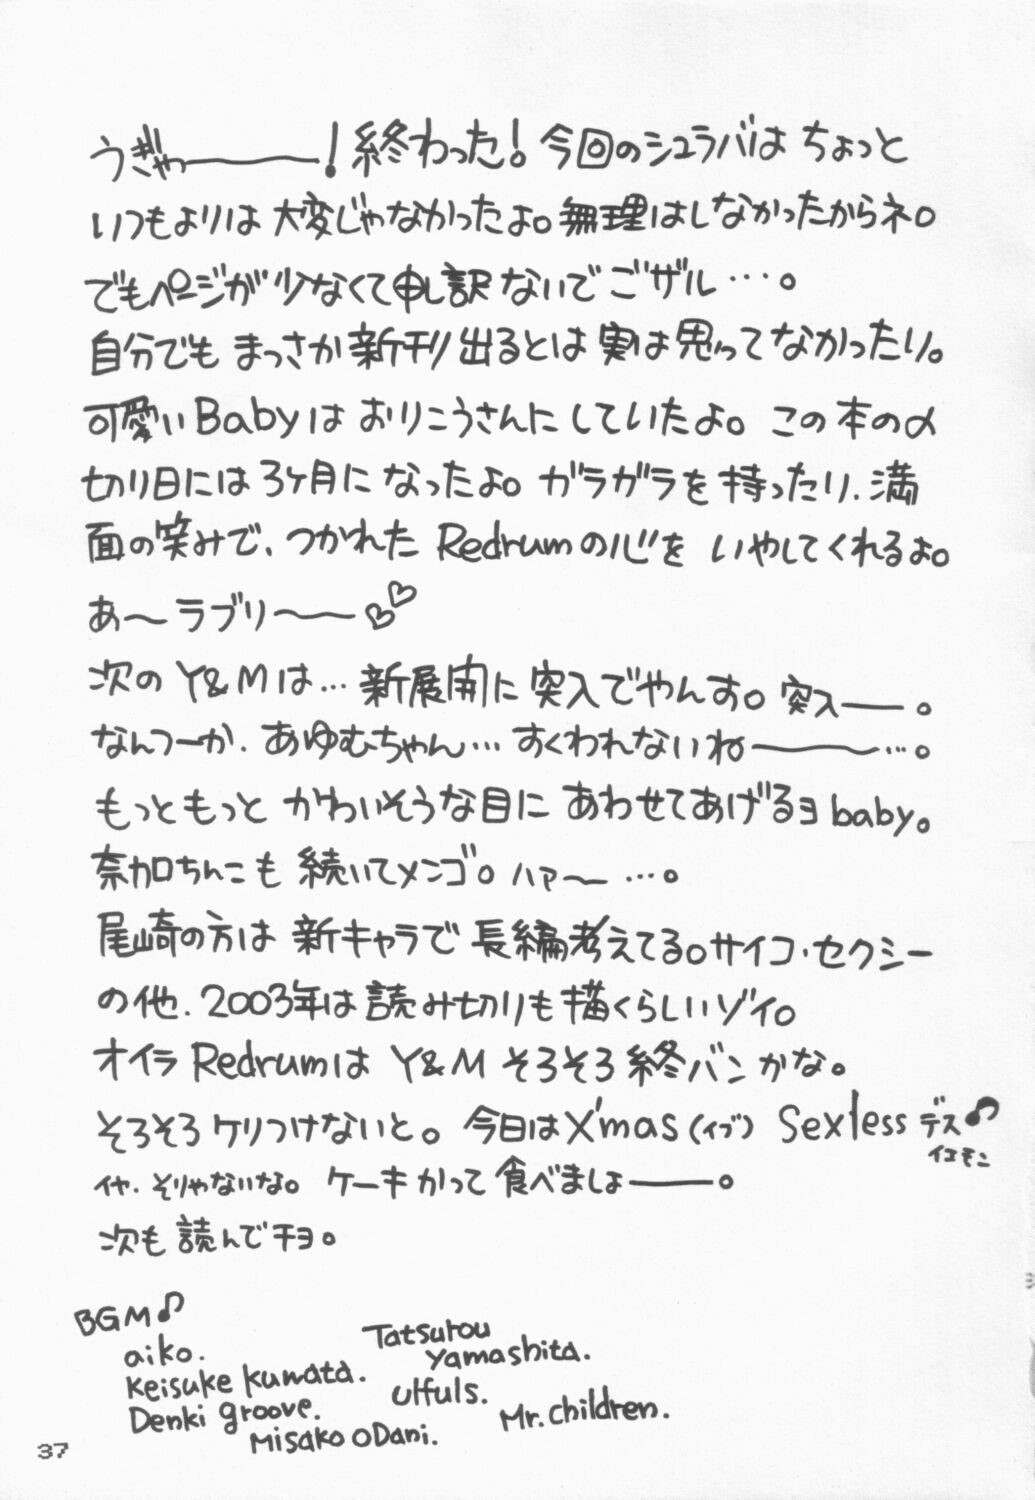 うぎゃ――――!終わった!今回のシュラバはちょっと
いつもよりは大変じゃなかったよ。無理はしなかったからネ。
でもページが少なくて申し訳ないでござル…。
自分でもまっさか新刊出るとは実は思ってなかったり。
可愛いBabyはおりこうさんにしていたよ。この本の〆
切り日には3ヶ月になったよ。ガラガラを持ったり、満
面の笑みで、つかれたRedrumの心をいやしてくれるよ。
あ～ラブリ～――♡♡
次のY&Mは…新展開に突入でやんす。突入――。
なんつーか、あゆむちゃん…すくわれないね――～…。
もっともっとかわいそうな目にあわせてあげるヨbaby。
奈加ちんこも続いてメンゴ。ハァ～…。
尾崎の方は新キャラで長編考えてる。サイコ・セクシー
の他、2003年は読み切りも描くらしいゾイ。
オイラRedrumはY&Mそろそろ終バンかな。
そろそろケリつけないと。今日はX'mas(イブ) Sexlessデス♪
イエモン
イヤ、そりゃないな。ケーキかって食べましょ――。
次も読んでチョ。
BGM♪
aiko.
Tatsurou Yamashita.
Keisuke Kuwata.
Ulfuls.
Denki groove.
Mr.Children.
Misako oDani.
37